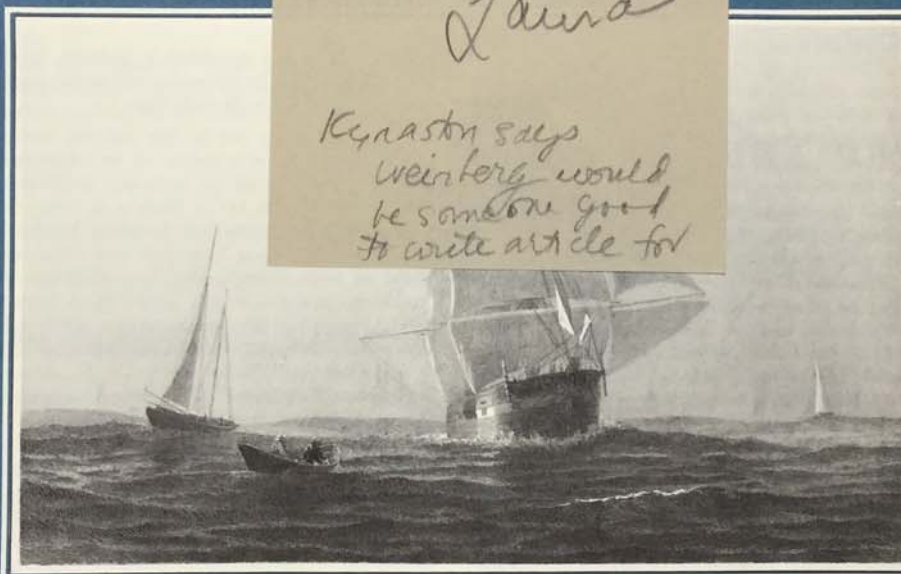 Laura
Kynaston says
Weinberg would
be someone good
to write article for